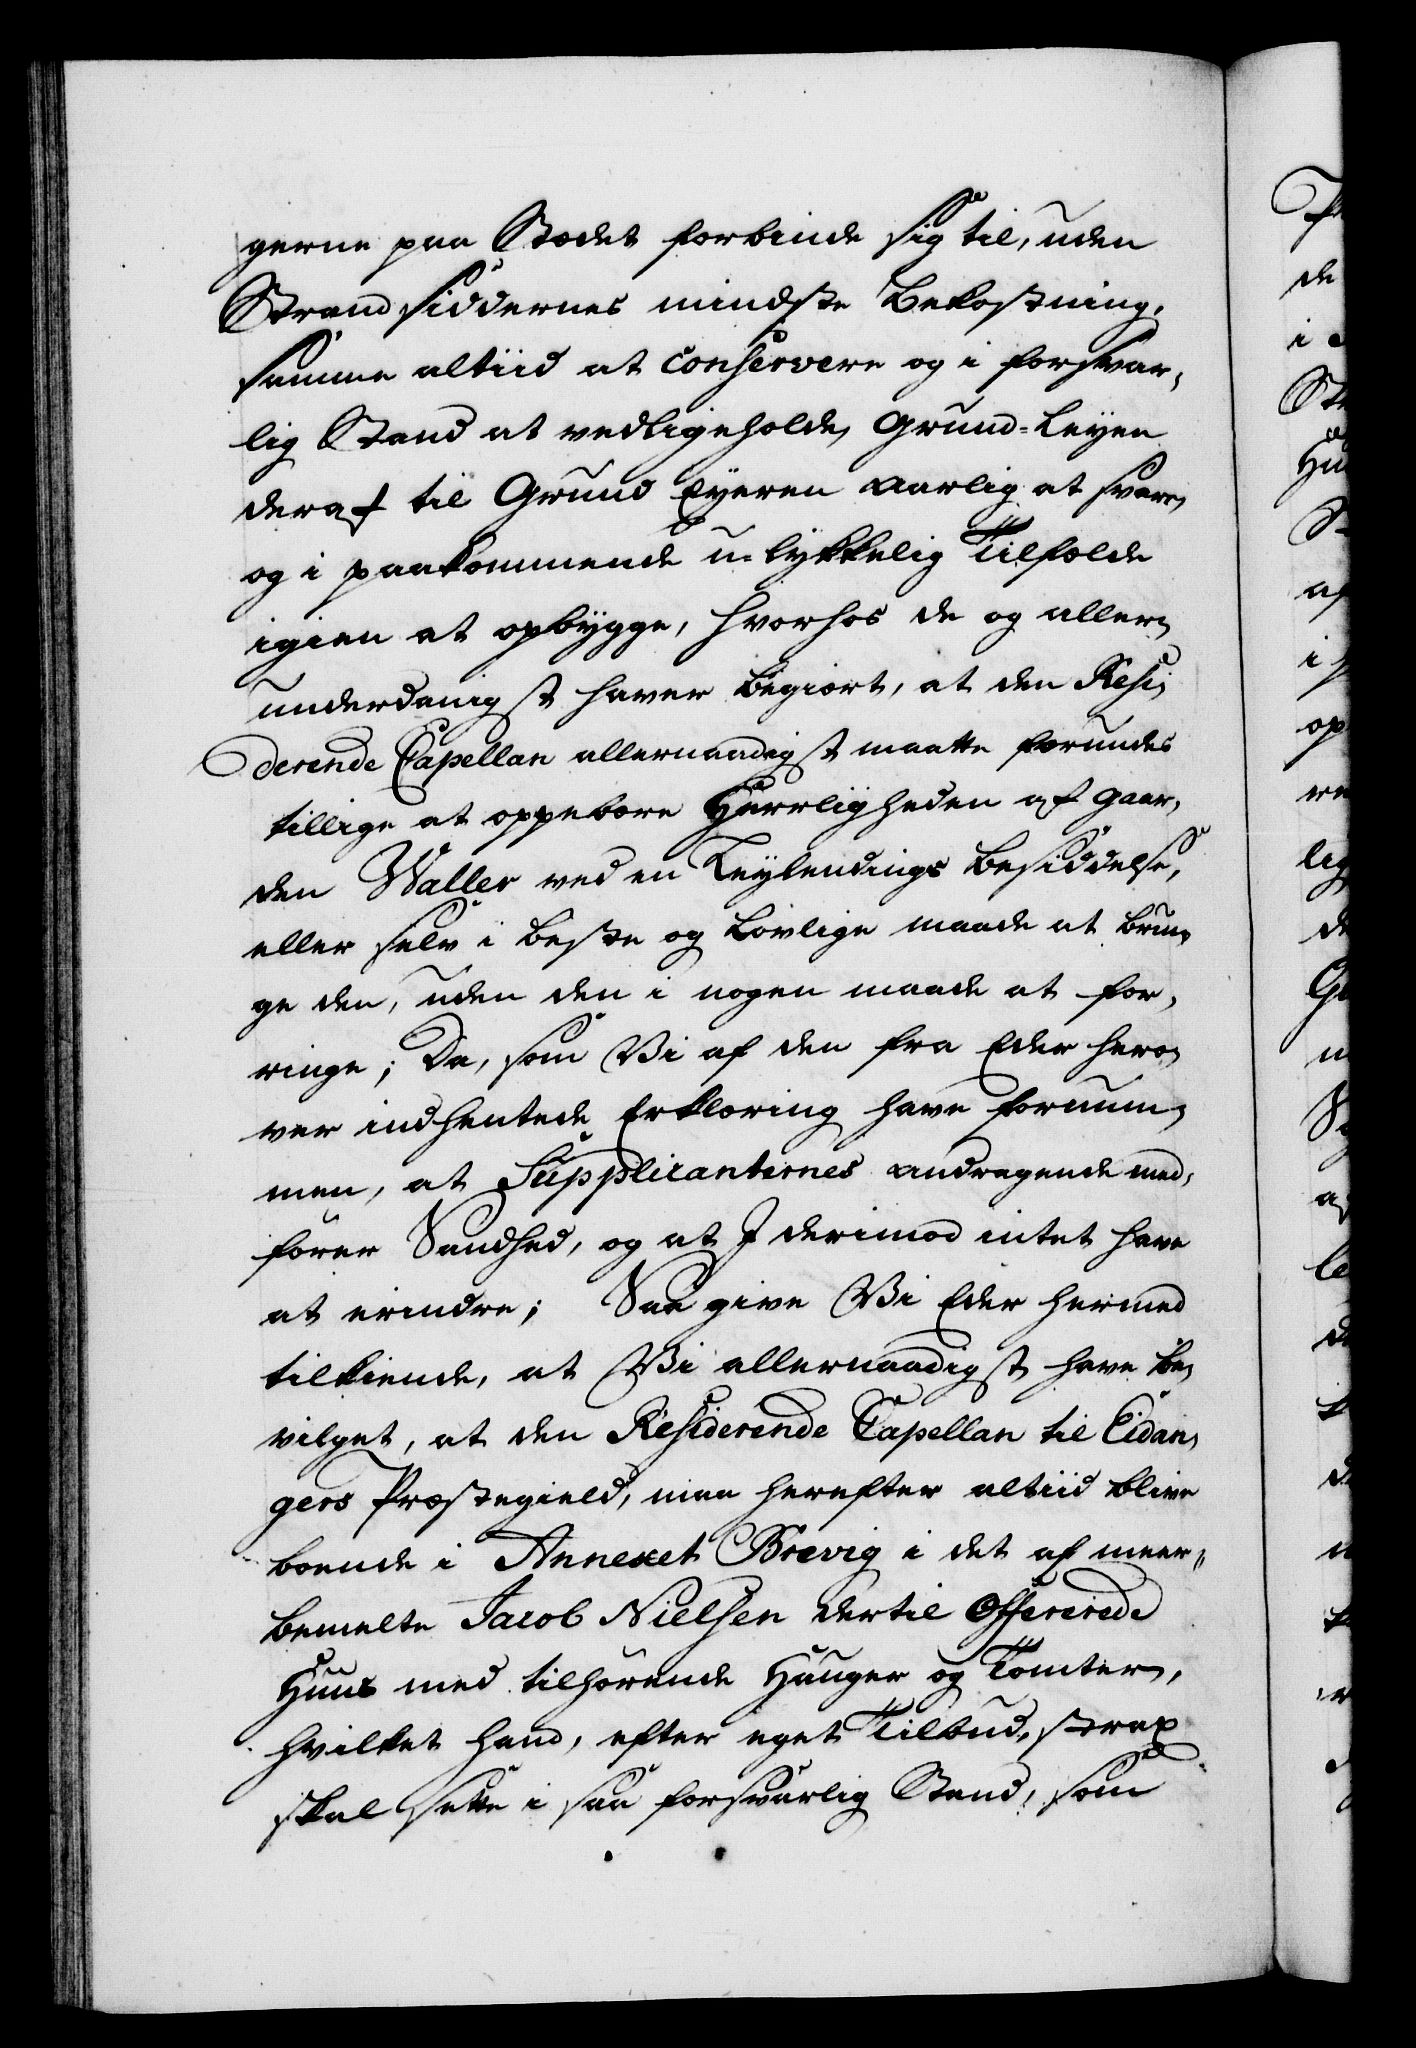 gerne paa Stædet forbinde sig til, uden
Strandsiddernes mindste Bekostning,
samme altiid at conservere og i forsvar,
lig Stand at vedligeholde, Grund-Leyen
deraf til Grund Eyeren aarlig at svare,
og i paakommende u-lykkelig Tilfælde
igien at opbygge, hvorhos de og aller,
underdanigst haver begiært, at den Resi,
derende Capellan allernaadigst maatte forundes
tillige at oppebære Herrligheden af Gaar,
den Waller ved en Leylendings Besiddelse,
eller selv i beste og lovlige maade at bru,
ge den, uden den i nogen maade at for,
ringe; Da, som Vi af den fra Eder her o,
ver indhentede Erklæring have fornum,
men, at Supplicanternes andragende med,
fører Sandhed, og at I derimod intet have
at erindre; Saa give Vi Eder hermed
tilkiende, at Vi allernaadigst have be,
vilget, at den Residerende Capellan til Eidan,
gers Præstegield, maa herefter altiid blive
boende i Annexet Brevig i det af meer,
bemelte Jacob Nielsen dertil Offererede
Huus med tilhørende Hauger og Tomter,
hvilket hand, efter eget Tilbud, strax
skal sette i saa forsvarlig Stand, som